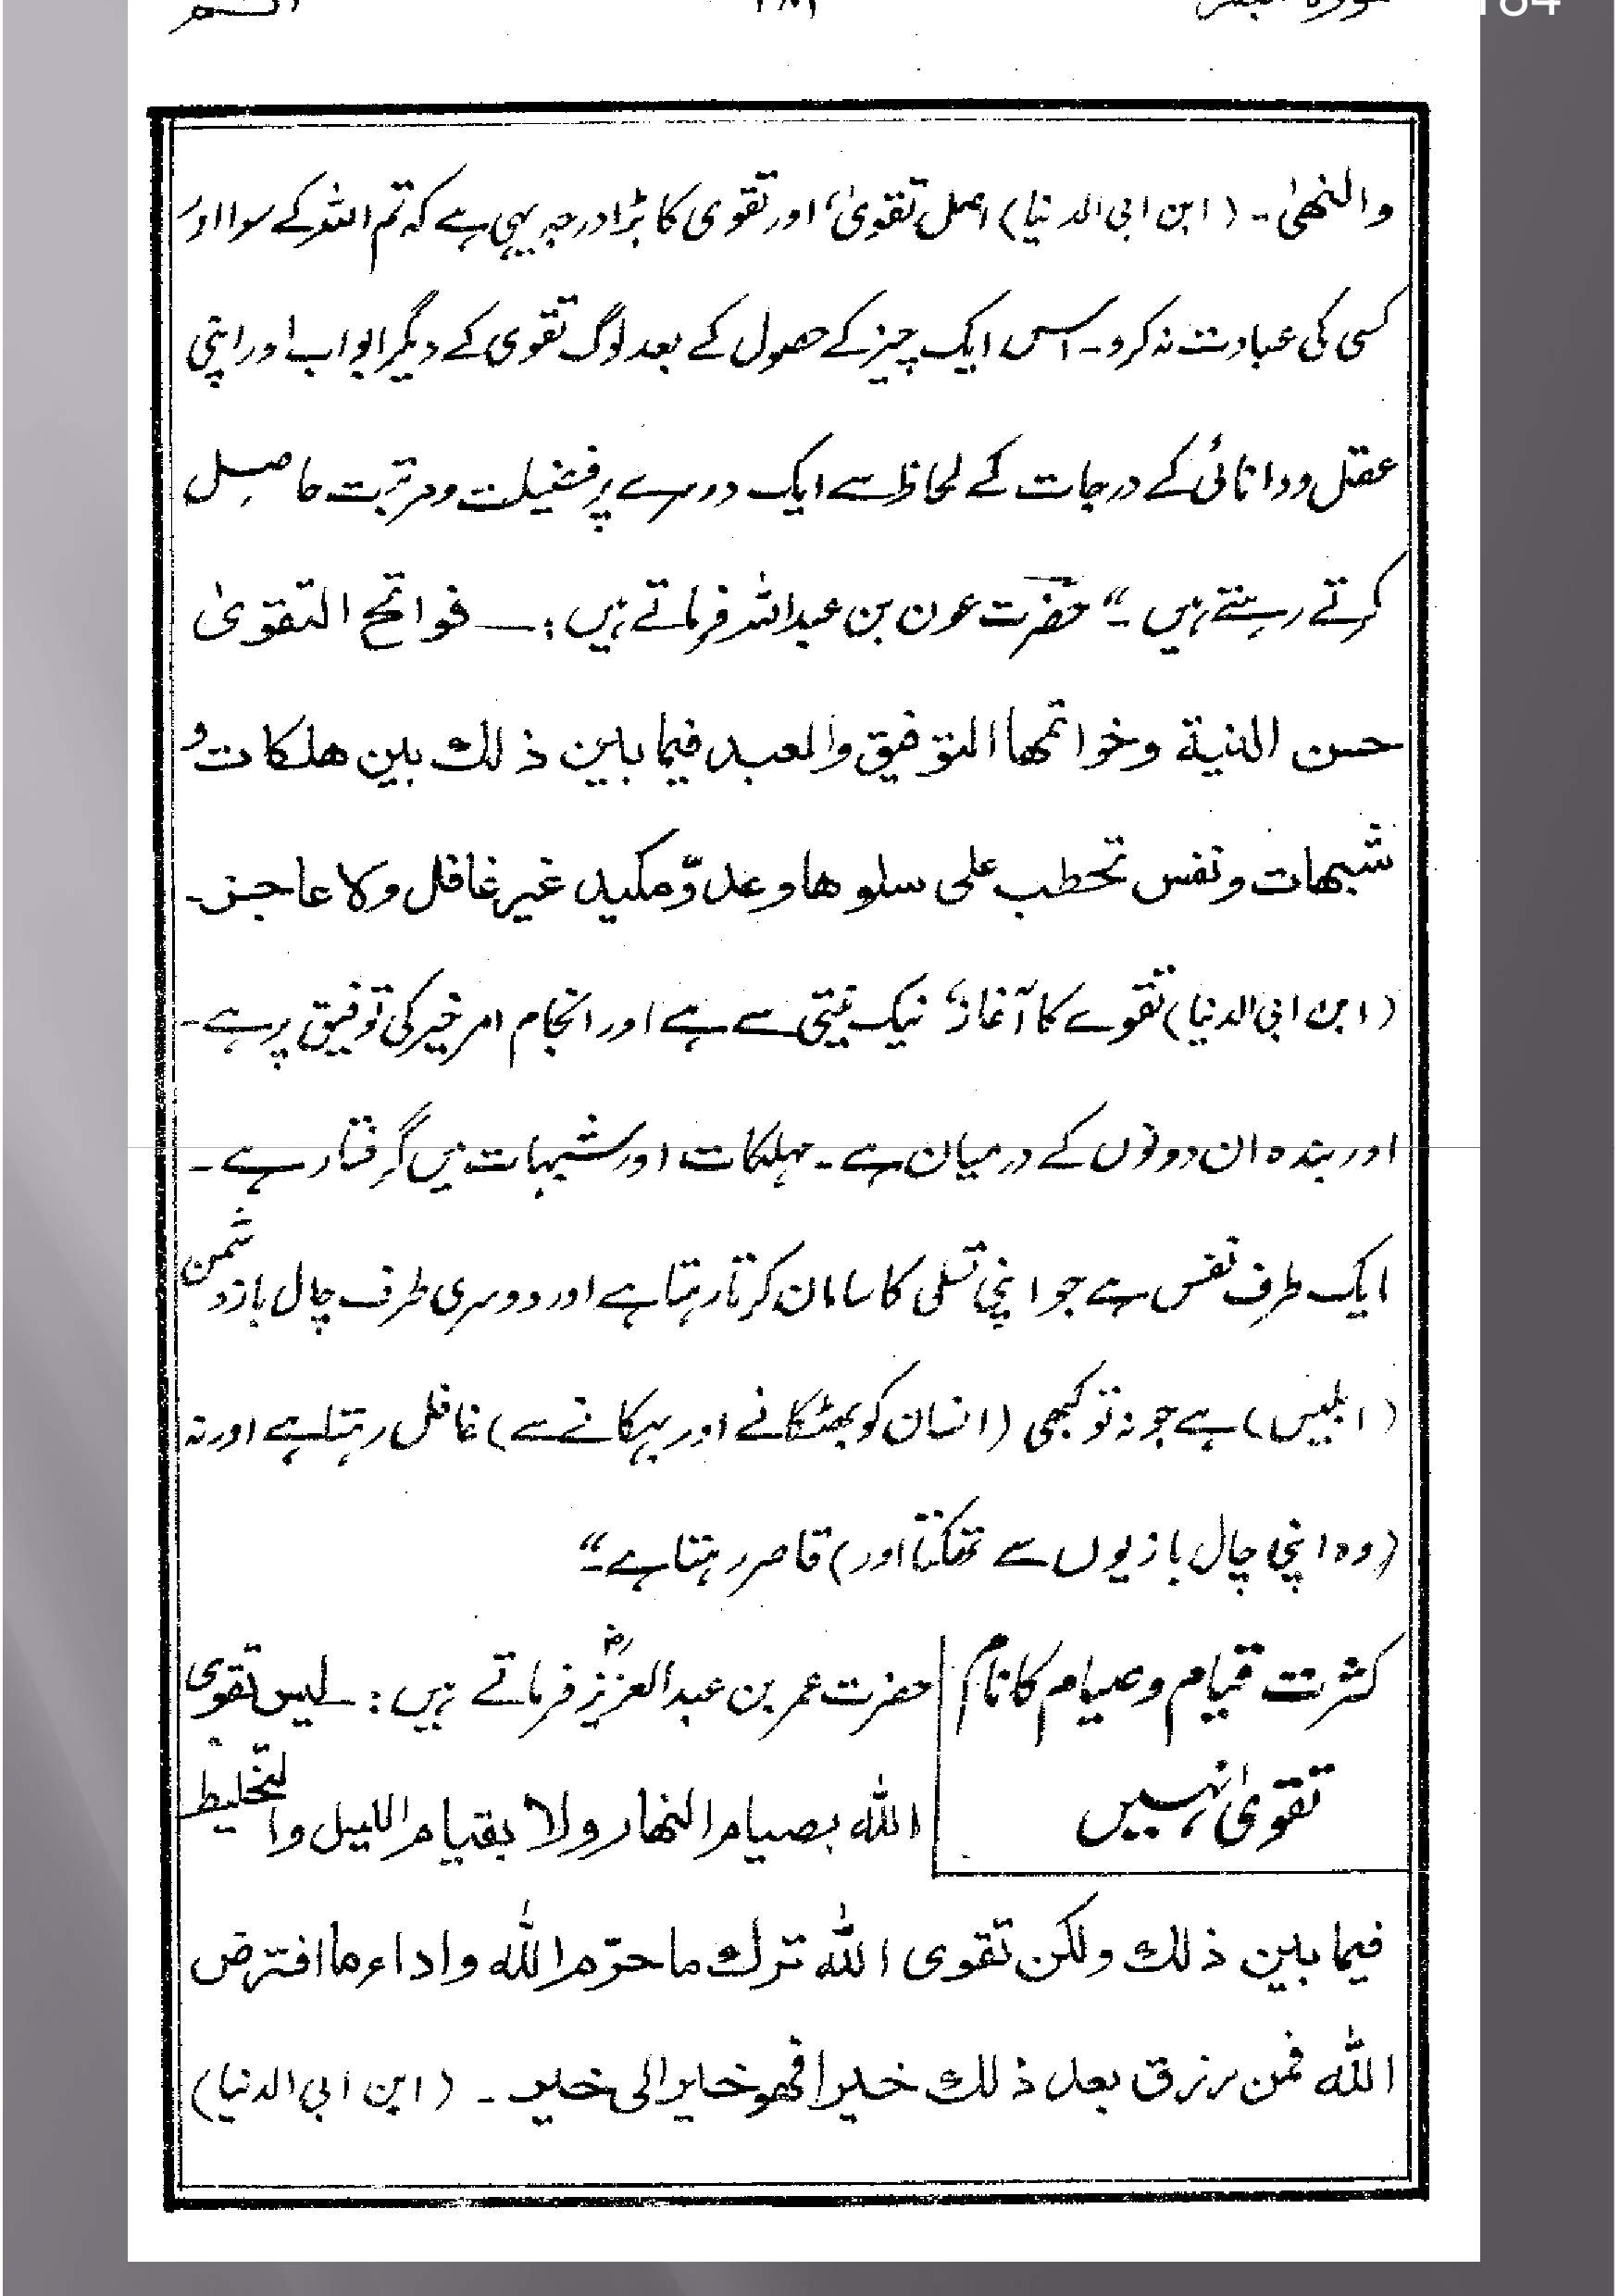 والنھیٰ۔ (ابن ابی الدنیا) اصل تقویٰ، اور تقوی کا بڑا درجہ یہی ہے کہ تم اللہ کے سوا اور
کسی کی عبادت نہ کرو۔ اس ایک چیز کے حصول کے بعد لوگ تقوی کے دیگر ابواب اور اپنی
عقل و دانائی کے درجات کے لحاظ سے ایک دوسرے پر فضیلت و مرتبت حاصل
کرتے رہتے ہیں۔" حضرت عون بن عبداللہ فرماتے ہیں:۔ فواتح التقویٰ
حسن النية وخواتمها التوفيق والعبد فيما بين ذلك بين هلكات و
شبهات ونفس تحطب على سلوها وعدوّ مكيد غير غافل ولا عاجز۔
(ابن ابی الدنیا) تقوے کا آغاز، نیک نیتی سے ہے اور انجام امر خیر کی توفیق پر ہے۔
اور بندہ ان دونوں کے درمیان ہے۔ مہلکات اور شبہات میں گرفتار ہے۔
ایک طرف نفس ہے جو اپنی تسلی کا سامان کرتا رہتا ہے اور دوسری طرف چال باز دشمن
(ابلیس) ہے جو نہ تو کبھی (انسان کو بھٹکانے اور بہکانے سے) غافل رہتا ہے اور نہ
(وہ اپنی چال بازیوں سے تھکتا اور) قاصر رہتا ہے۔"
کثرت قیام و صیام کا نام
تقویٰ نہیں
حضرت عمر بن عبد العزیزؒ فرماتے ہیں:۔ لیس تقوی
الله بصيام النهار ولا بقيام الليل والتخليط
فيما بين ذلك ولكن تقوى الله ترك ما حرّم الله واداء ما افترض
الله فمن رزق بعد ذلك خيرا فهو خير الى خير۔ (ابن ابی الدنیا)